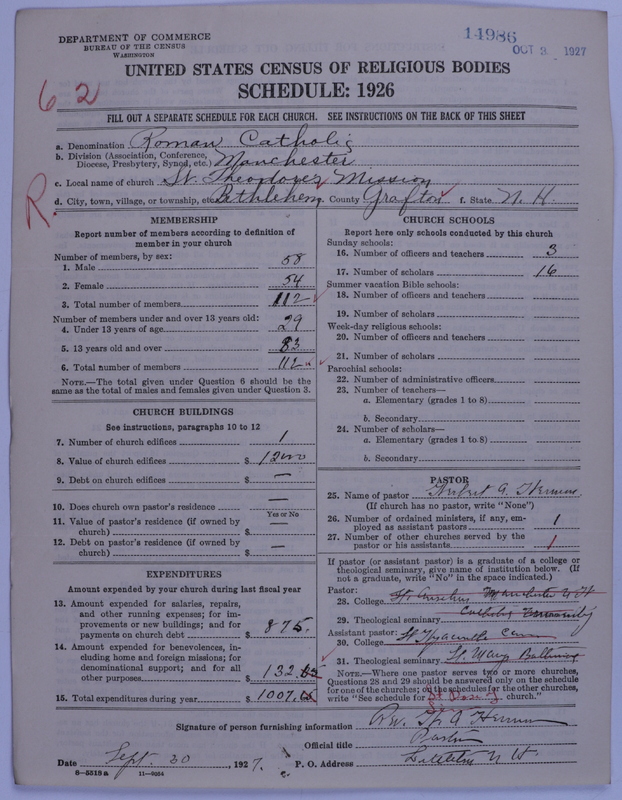 DEPARTMENT OF COMMERCE
BUREAU OF THE CENSUS
WASHINGTON
14986
OCT 3 1927
UNITED STATES CENSUS OF RELIGIOUS BODIES
SCHEDULE: 1926
62
FILL OUT A SEPARATE SCHEDULE FOR EACH CHURCH. SEE INSTRUCTIONS ON THE BACK OF THIS SHEET
a. Denomination Roman Catholic
b. Division (Association, Conference,
Diocese, Presbytery, Synod, etc.) Manchester
c. Local name of church St. Theodores Mission
d. City, town, village, or township, etc. Bethlehem County Grafton f. State N. H.
R.
MEMBERSHIP
Report number of members according to definition of
member in your church
Number of members, by sex:
1. Male 58
2. Female 54
3. Total number of members 112
Number of members under and over 13 years old:
4. Under 13 years of age 29
5. 13 years old and over 83
6. Total number of members 112
NOTE.—The total given under Question 6 should be
same as the total of males and females given under Question 3.
CHURCH BUILDINGS
See instructions, paragraphs 10 to 12
7. Number of church edifices 1
8. Value of church edifices $ 12000
9. Debt on church edifices $ —
10. Does church own pastor's residence —
Yes or No
11. Value of pastor's residence (if owned by
church) $ —
12. Debt on pastor's residence (if owned by
church) $ —
EXPENDITURES
Amount expended by your church during last fiscal year
13. Amount expended for salaries, repairs,
and other running expenses; for im-
provements or new buildings; and for
payments on church debt $ 875.
14. Amount expended for benevolences, in-
cluding home and foreign missions; for
denominational support; and for all
other purposes $ 132.
15. Total expenditures during year $ 1007.
CHURCH SCHOOLS
Report here only schools conducted by this church
Sunday schools:
16. Number of officers and teachers 3
17. Number of scholars 16
Summer vacation Bible schools:
18. Number of officers and teachers
19. Number of scholars
Week-day religious schools:
20. Number of officers and teachers
21. Number of scholars
Parochial schools:
22. Number of administrative officers
23. Number of teachers—
a. Elementary (grades 1 to 8)
b. Secondary
24. Number of scholars—
a. Elementary (grades 1 to 8)
b. Secondary
PASTOR
25. Name of pastor A.
(If church has no pastor, write "None")
26. Number of ordained ministers, if any, em-
ployed as assistant pastors 1
27. Number of other churches served by the
pastor or his assistants 1
If pastor (or assistant pastor) is a graduate of a college or
theological seminary, give name of institution below. (If
not a graduate, write "No" in the space indicated.)
Pastor:
28. College St. Anselms Manchester N H
29. Theological seminary Catholic University
Assistant pastor:
30. College St
31. Theological seminary St. Mary Baltimore
NOTE.—Where one pastor serves two or more churches,
Questions 28 and 29 should be answered only on the schedule
for one of the churches; on the schedules for the other churches,
write "See schedule for St Rose of church."
Signature of person furnishing information Rev. A
Official title Pastor
Date Sept. 30, 1927. P. O. Address Littleton N H.
8-5518 a 11-9054